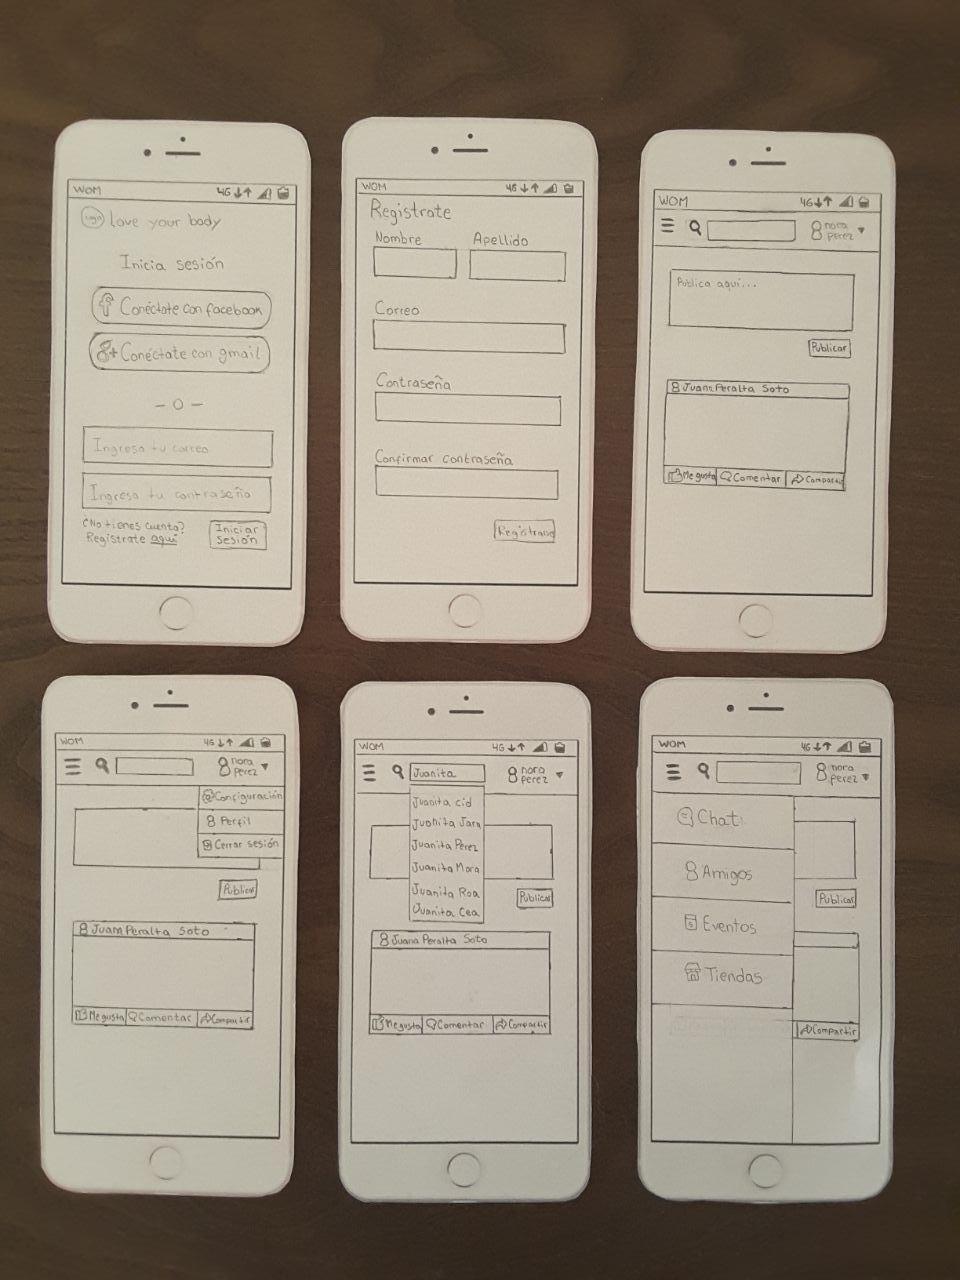 WOM 4G
Logo Love your body
Inicia sesión
Conéctate con facebook
g+ Conéctate con gmail
- O -
Ingresa tu correo
Ingresa tu contraseña
¿No tienes cuenta?
Regístrate aquí
Iniciar
sesión
WOM 4G
Registrate
Nombre Apellido
Correo
Contraseña
Confirmar contraseña
Registrarse
WOM 4G
nora
perez
Publica aquí...
Publicar
Juana Peralta Soto
Me gusta Comentar Compartir
WOM 4G
nora
perez
Configuración
Perfil
Cerrar sesión
Publicar
Juana Peralta Soto
Me gusta Comentar Compartir
WOM 4G
Juanita
nora
perez
Juanita Cid
Juanita Jara
Juanita Perez
Juanita Mora
Juanita Roa
Juanita Cea
Publicar
Juana Peralta Soto
Me gusta Comentar Compartir
WOM 4G
nora
perez
Chat
Amigos
Eventos
Tiendas
Publicar
Compartir